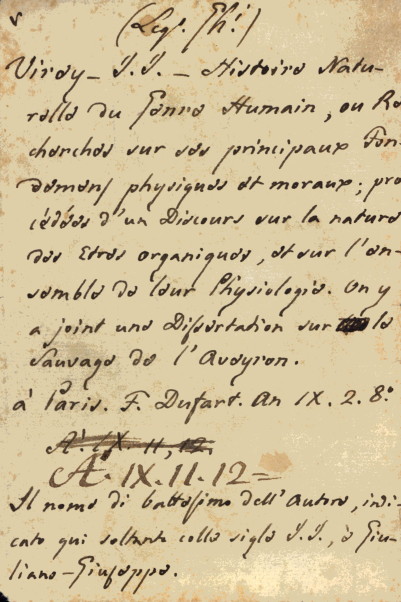 (Leg. Ph.)
Virey - J.J. - Histoire Natu-
relle du Genre Humain, ou Re
cherches sur ses principaux Fon-
demens physiques et moraux; pré
cédées d'un Discours sur la nature
des Etres organiques, et sur l'en-
semble de leur Physiologie. On y
a joint une Dissertation sur le
Sauvage de l'Aveyron.
à Paris. F. Dufart. An IX. 2. 8.°
A. IX. 11, 12.
A. IX. 11. 12=
Il nome di battesimo dell'Autore, indi-
cato qui soltanto colle sigle J.J., è Giu-
liano-Giuseppe.